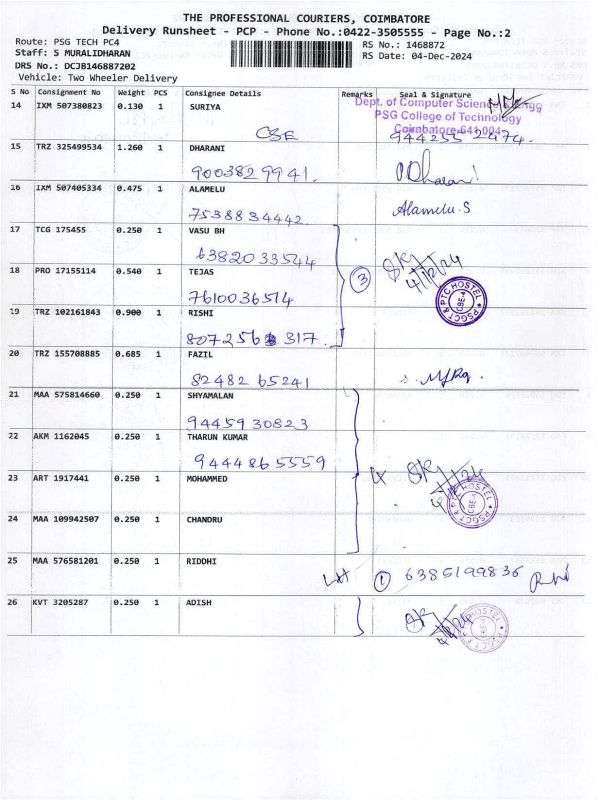 THE PROFESSIONAL COURIERS, COIMBATORE
Delivery Runsheet - PCP - Phone No.:0422-3505555 - Page No.:2
Route: PSG TECH PC4 RS No.: 1468872
Staff: S MURALIDHARAN RS Date: 04-Dec-2024
DRS No.: DCJB146887202
Vehicle: Two Wheeler Delivery
S No Consignment No Weight PCS Consignee Details Remarks Seal & Signature
14 IXM 507380823 0.130 1 SURIYA Dept. of Computer Science & Engg
PSG College of Technology
Coimbatore-641 004
CSE 944255 2474.
15 TRZ 325499534 1.260 1 DHARANI
9003829941. Dharani
16 IXM 507405334 0.475 1 ALAMELU
7538834442. Alamelu.S
17 TCG 175455 0.250 1 VASU BH
6382033544
18 PRO 17155114 0.540 1 TEJAS 3 4/12/24
7610036514 PSGCT & PTC HOSTEL CBE-4
19 TRZ 102161843 0.900 1 RISHI
807256 317.
20 TRZ 155708885 0.685 1 FAZIL
82482 65241
21 MAA 575814660 0.250 1 SHYAMALAN
9445930823
22 AKM 1162045 0.250 1 THARUN KUMAR
9444865559
23 ART 1917441 0.250 1 MOHAMMED
PSGCT & PTC HOSTEL CBE-4
24 MAA 109942507 0.250 1 CHANDRU
25 MAA 576581201 0.250 1 RIDDHI
LH 1 6385199836
26 KVT 3205287 0.250 1 ADISH